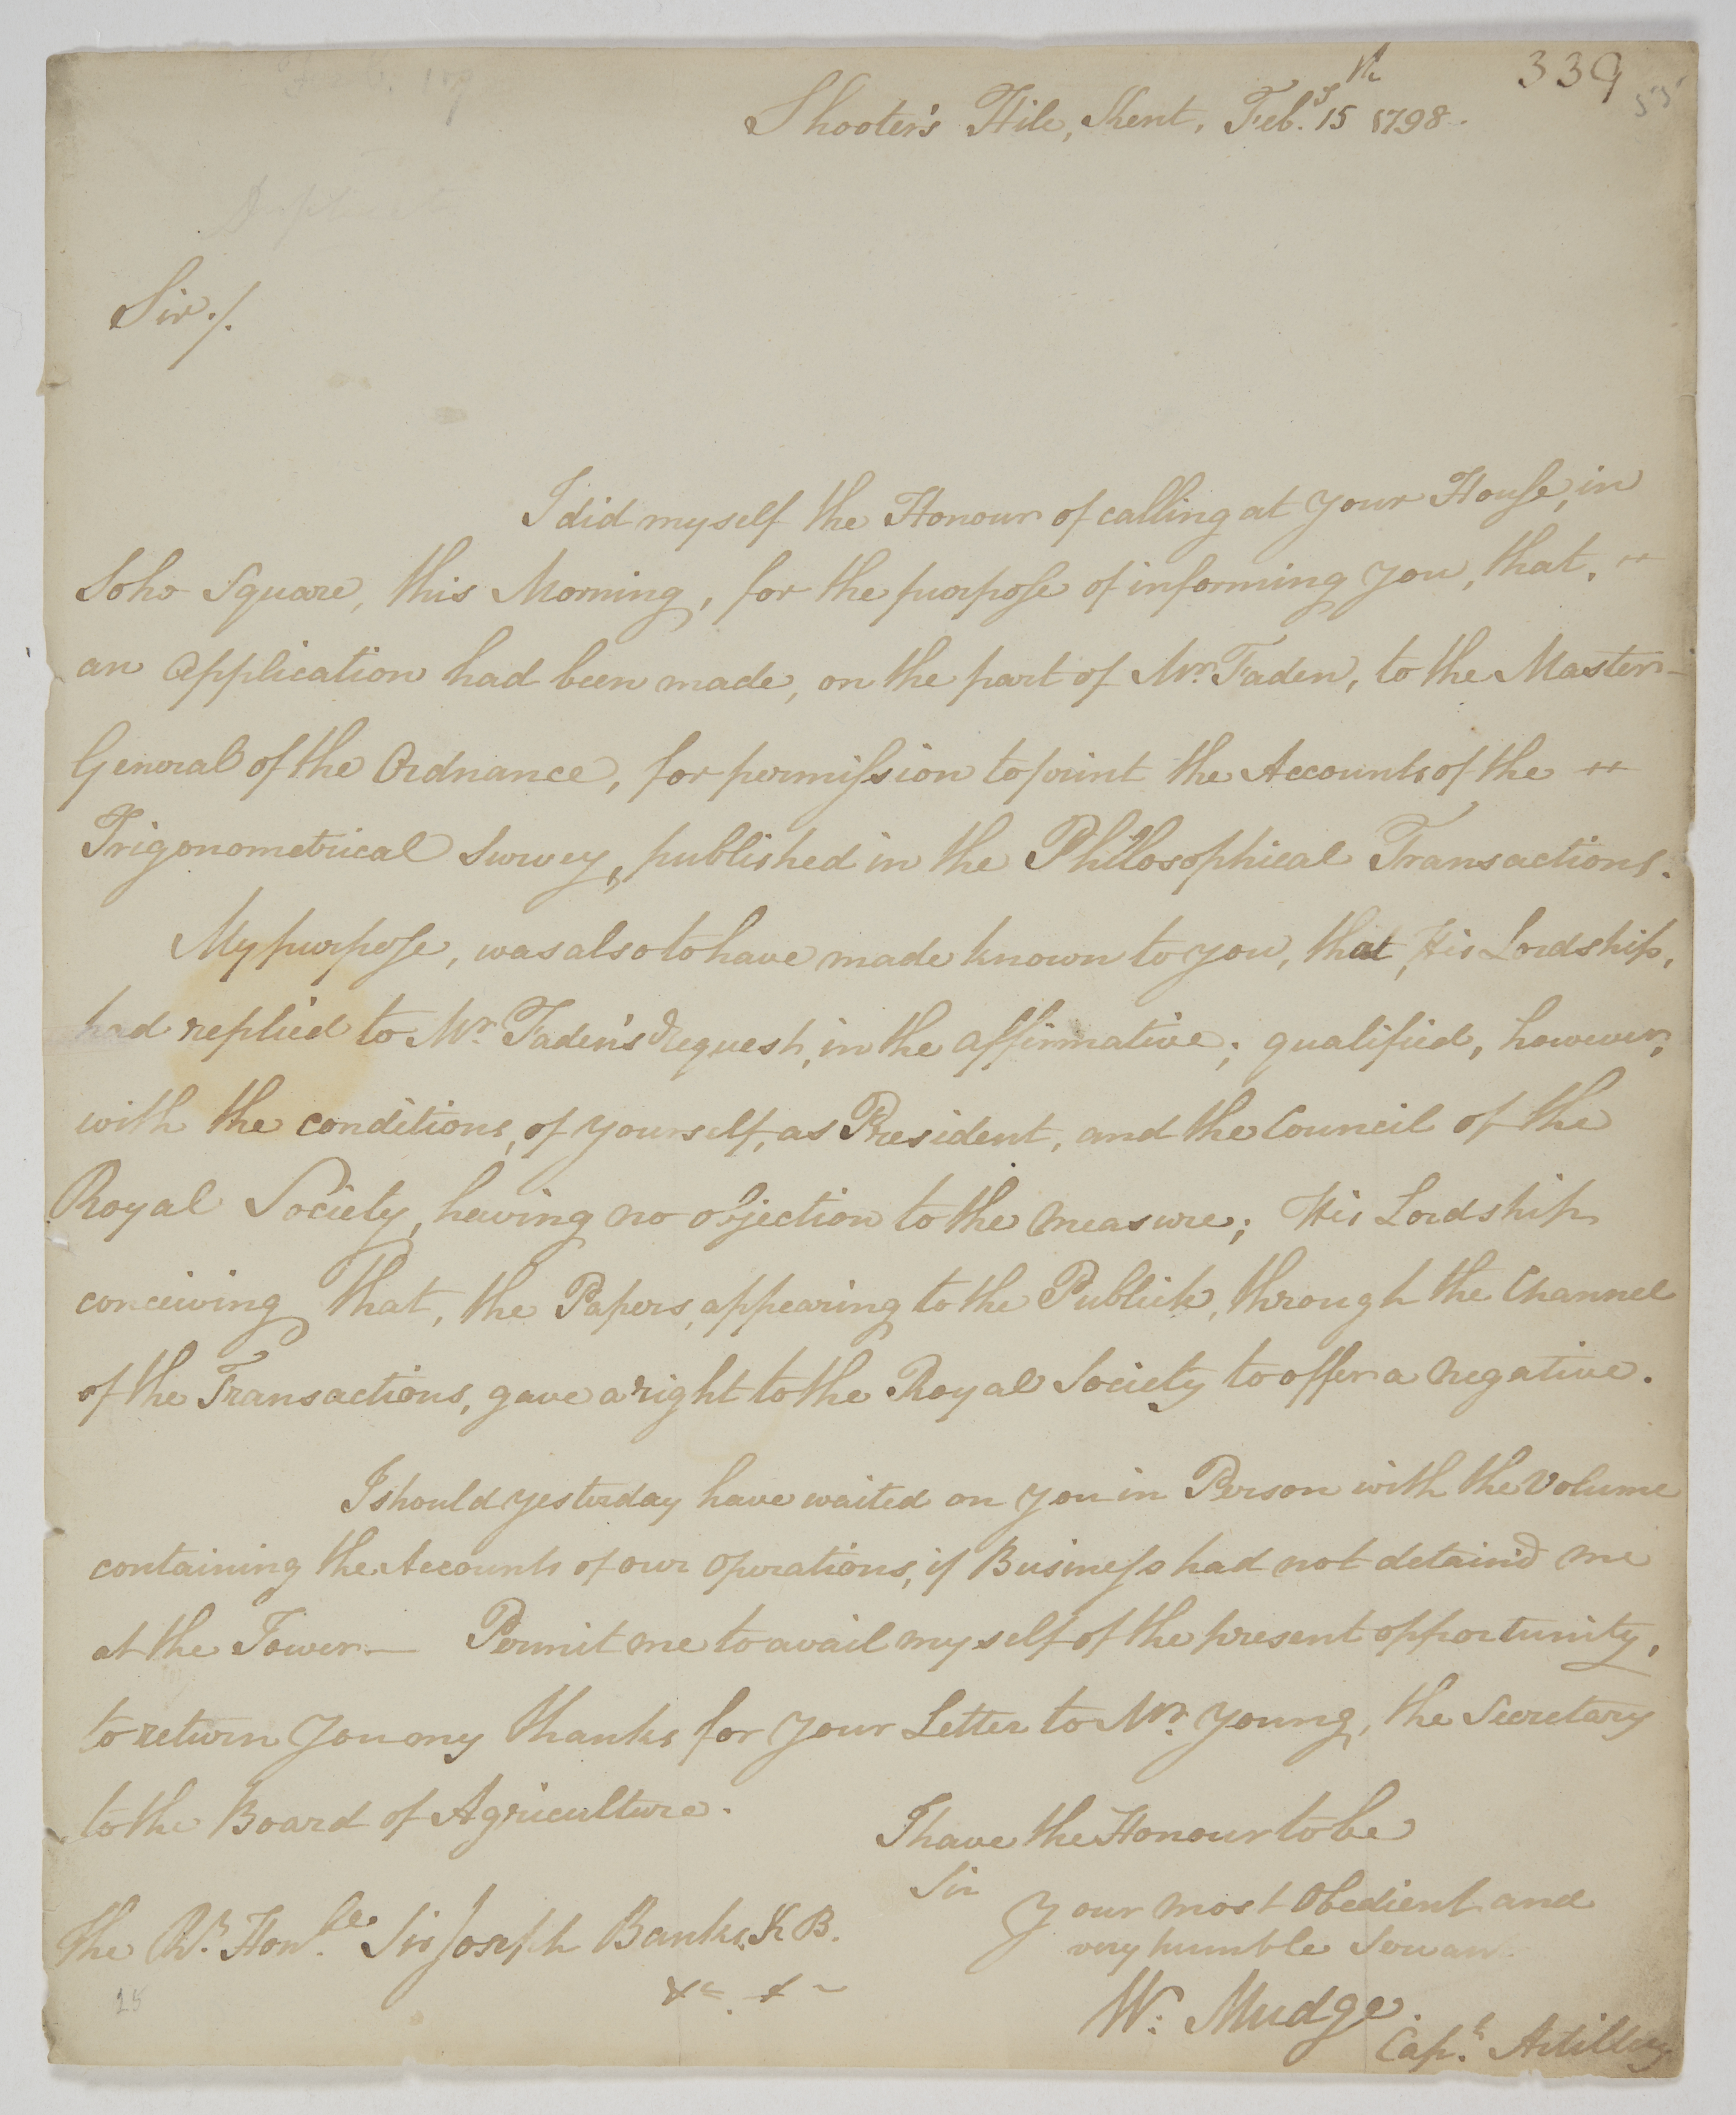 339
55
Shooter's Hill, Kent, Feb.y 15th 1798.
Duplicate
Sir./.
I did myself the Honour of calling at your House, in
Soho Square, this Morning, for the purpose of informing you, that,
an Application had been made, on the part of Mr. Faden, to the Master-
General of the Ordnance, for permission to print the Accounts of the
Trigonometrical Survey, published in the Philosophical Transactions.
My purpose, was also to have made known to you, that, His Lordship,
had replied to Mr. Faden's Request, in the affirmative; qualified, however,
with the conditions, of yourself, as President, and the Council of the
Royal Society, having no objection to the measure; His Lordship
conceiving that, the Papers, appearing to the Publick, through the Channel
of the Transactions, gave a right to the Royal Society to offer a negative.
I should yesterday have waited on you in Person with the Volume
containing the Accounts of our Operations, if Business had not detain'd me
at the Tower — Permit me to avail myself of the present opportunity,
to return you my thanks for your Letter to Mr. Young, the Secretary
to the Board of Agriculture.
I have the Honour to be
Sir
Your most Obedient and
very humble Servan
The Rt. Hon.ble Sir Joseph Banks, K B.
&c. &c
W: Mudge.
Capt. Artillery
25